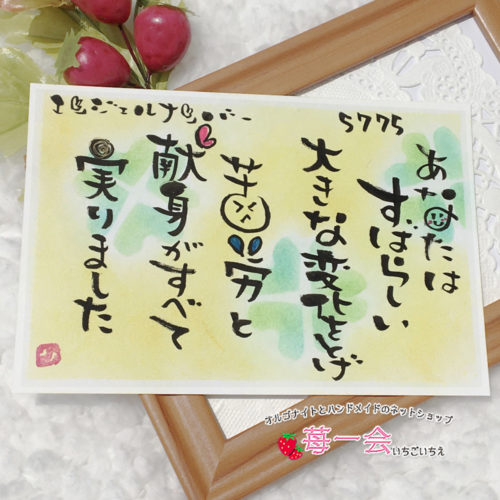 エンジェルナンバー
5775
あなたは
すばらしい
大きな変化をとげ
苦労と
献身がすべて
実りました
オルゴナイトとハンドメイドのネットショップ
苺一会いちごいちえ